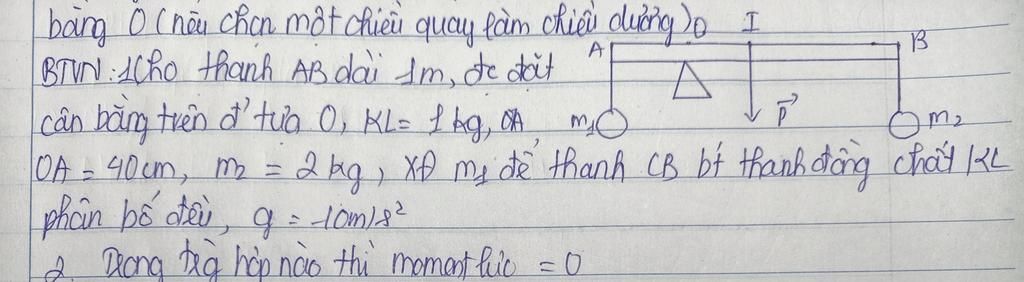 bằng 0 (nếu chọn một chiều quay làm chiều dương) O I
A B
BTVN: 1 Cho thanh AB dài 1m, đc đặt
cân bằng trên đ' tựa O, KL = 1kg, OA m1 P m2
OA = 40cm, m2 = 2kg, XĐ m1 để thanh CB bt thanh đồng chất KL
phân bố đều, g = 10m/s²
2. Trong trg hợp nào thì moment lực = 0